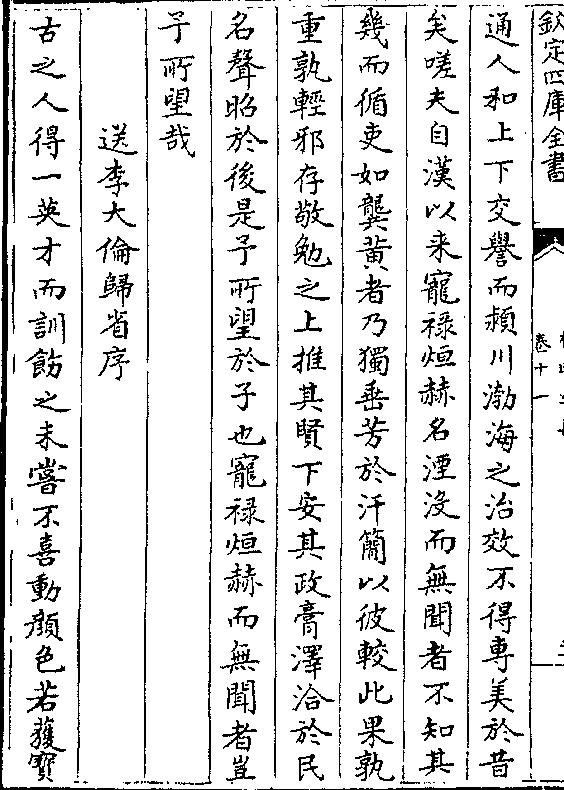 欽定四庫全書
卷十一
通人和上下交譽而潁川渤海之治效不得專美於昔
矣嗟夫自漢以来寵祿烜赫名湮没而無聞者不知其
幾而循吏如龔黄者乃獨垂芳於汗簡以彼較此果孰
重孰輕邪存敬勉之上推其賢下安其政膏澤洽於民
名聲昭於後是予所望於子也寵祿烜赫而無聞者豈
予所望哉
送李大倫歸省序
古之人得一英才而訓飭之未嘗不喜動顔色若獲寳